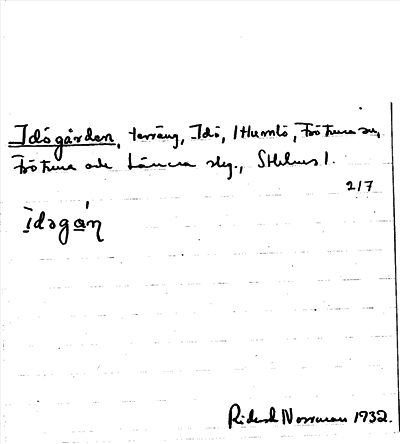 Idögården, terräng, Idö, 1 Humlö, Frötuna sn,
Frötuna och Länna skg., Sthlms l.
217
ìdəgán
Rickard Norrman 1932.